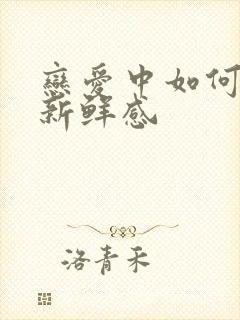 戀愛中如何
新鮮感
洛青禾